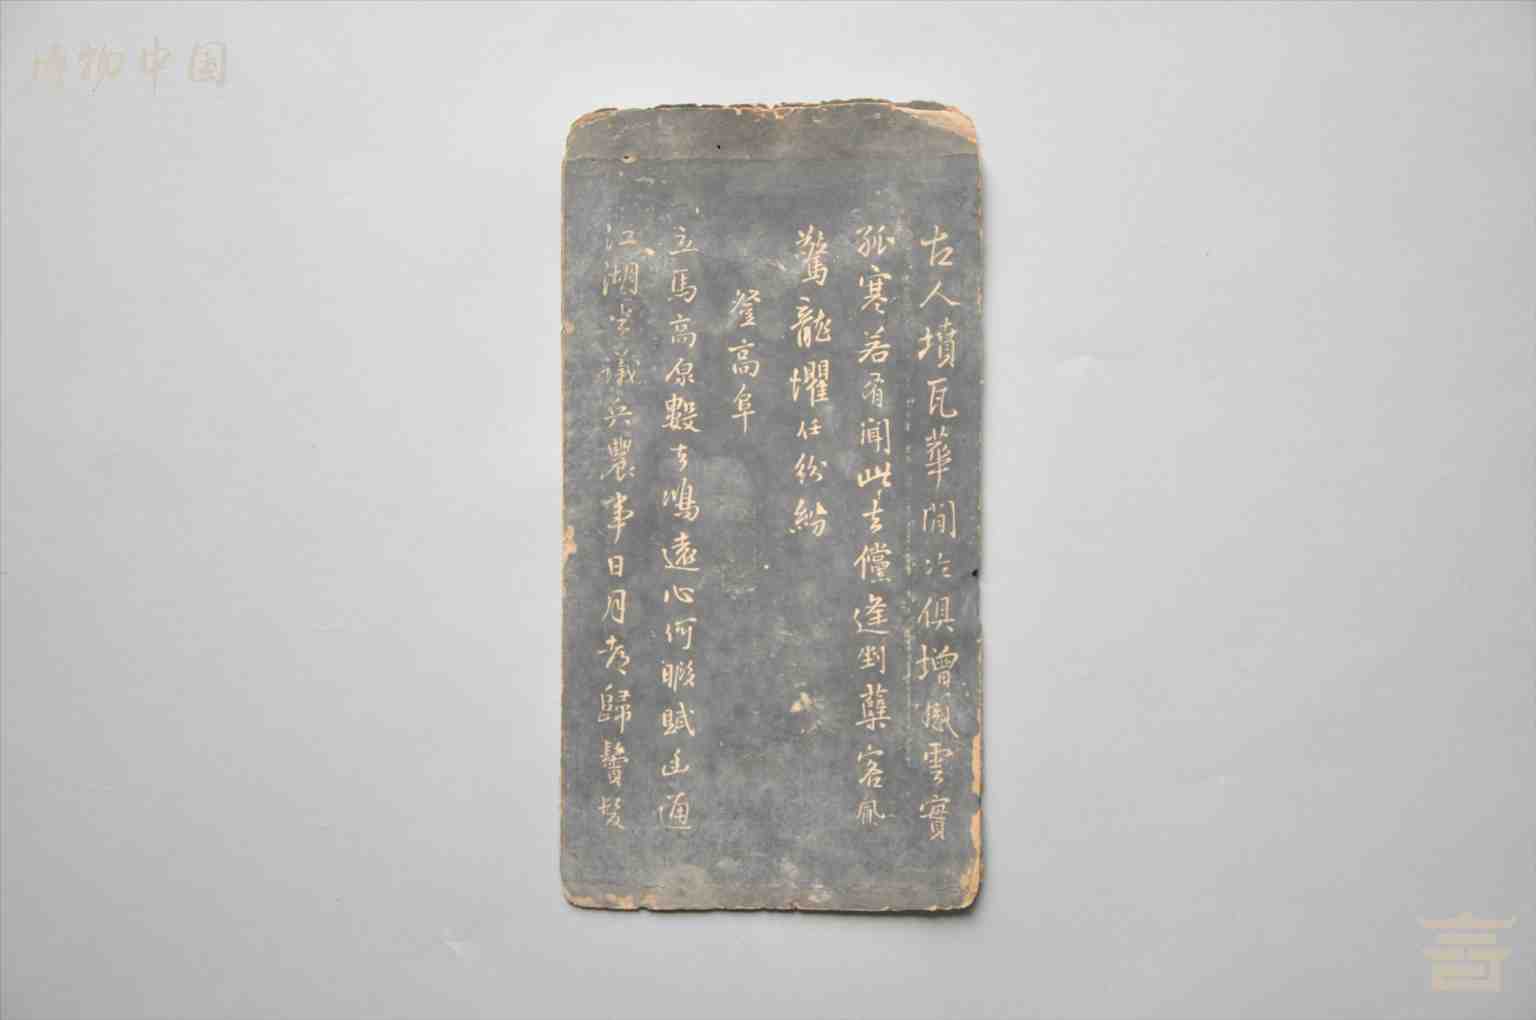 博物中国
古人墳瓦華間冷俱增風雲實
孤寒若有聞此去儻逢對蘗客佩
驚龍懼任紛紛
登高阜
立馬高原數去鴻遠心何暇賦幽通
江湖當議兵農事日月前歸鬢髮